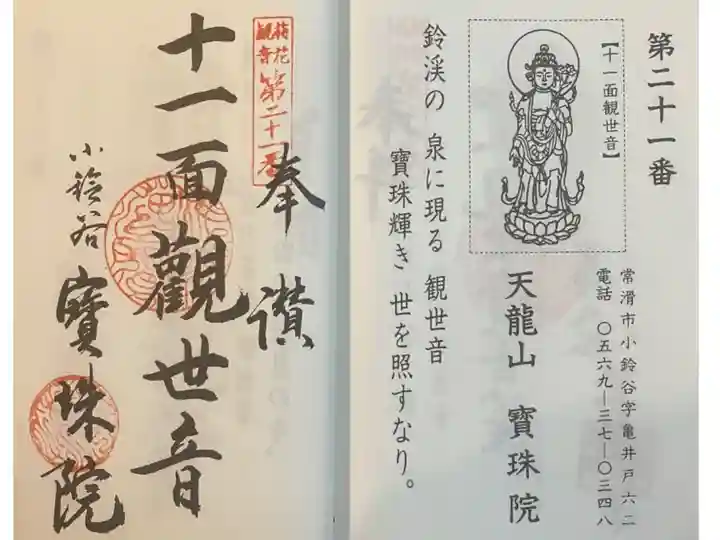 第二十一番
【十一面観世音】
常滑市小鈴谷字亀井戸六二
電話 〇五六九―三七―〇三四八
天龍山 寶珠院
鈴渓の 泉に現る 観世音
寶珠輝き 世を照すなり。
第二十一番
奉讃
十一面觀世音
小鈴谷 寶珠院